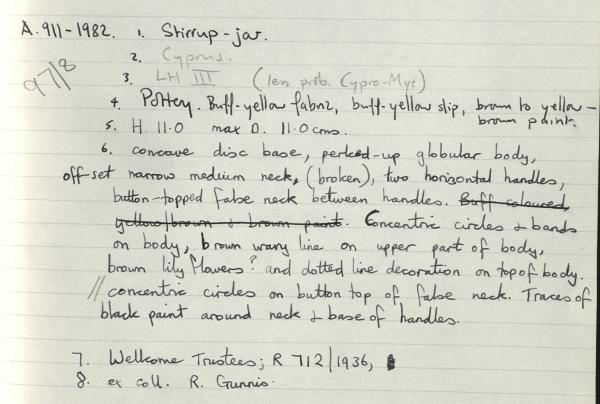 A.911-1982. 1. Stirrup-jar.
2. Cyprus.
97/8
3. LH III (less prob. Cypro-Myc)
4. Pottery. Buff-yellow fabric, buff-yellow slip, brown to yellow-
brown paint.
5. H 11.0 max D. 11.0 cms.
6. concave disc base, perked-up globular body,
off-set narrow medium neck, (broken), two horizontal handles,
button-topped false neck between handles. Buff coloured,
yellow/brown & brown paint. Concentric circles & bands
on body, brown wavy line on upper part of body,
brown lily flowers? and dotted line decoration on top of body.
// concentric circles on button top of false neck. Traces of
black paint around neck & base of handles.
7. Wellcome Trustees; R 712/1936,
8. ex coll. R. Gunnis.